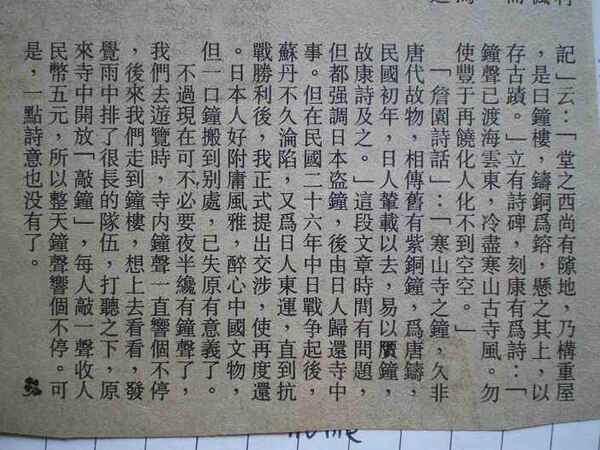 記」云:「堂之西尚有隙地,乃構重屋
,是曰鐘樓,鑄銅爲鎔,懸之其上,以
存古蹟。」立有詩碑,刻康有爲詩:「
鐘聲已渡海雲東,冷盡寒山古寺風。勿
使豐于再饒化人化不到空空。」
「詹園詩話」:「寒山寺之鐘,久非
唐代故物,相傳舊有紫銅鐘,爲唐鑄,
民國初年,日人輦載以去,易以贋鐘,
故康詩及之。」這段文章時間有問題,
但都强調日本盜鐘,後由日人歸還寺中
事。但在民國二十六年中日戰争起後,
蘇丹不久淪陷,又爲日人東運,直到抗
戰勝利後,我正式提出交涉,使再度還
。日本人好附庸風雅,醉心中國文物,
但一口鐘搬到别處,已失原有意義了。
不過現在可不必要夜半纔有鐘聲了,
我們去遊覽時,寺内鐘聲一直響個不停
,後來我們走到鐘樓,想上去看看,發
覺雨中排了很長的隊伍,打聽之下,原
來寺中開放「敲鐘」,每人敲一聲收人
民幣五元,所以整天鐘聲響個不停。可
是,一點詩意也没有了。